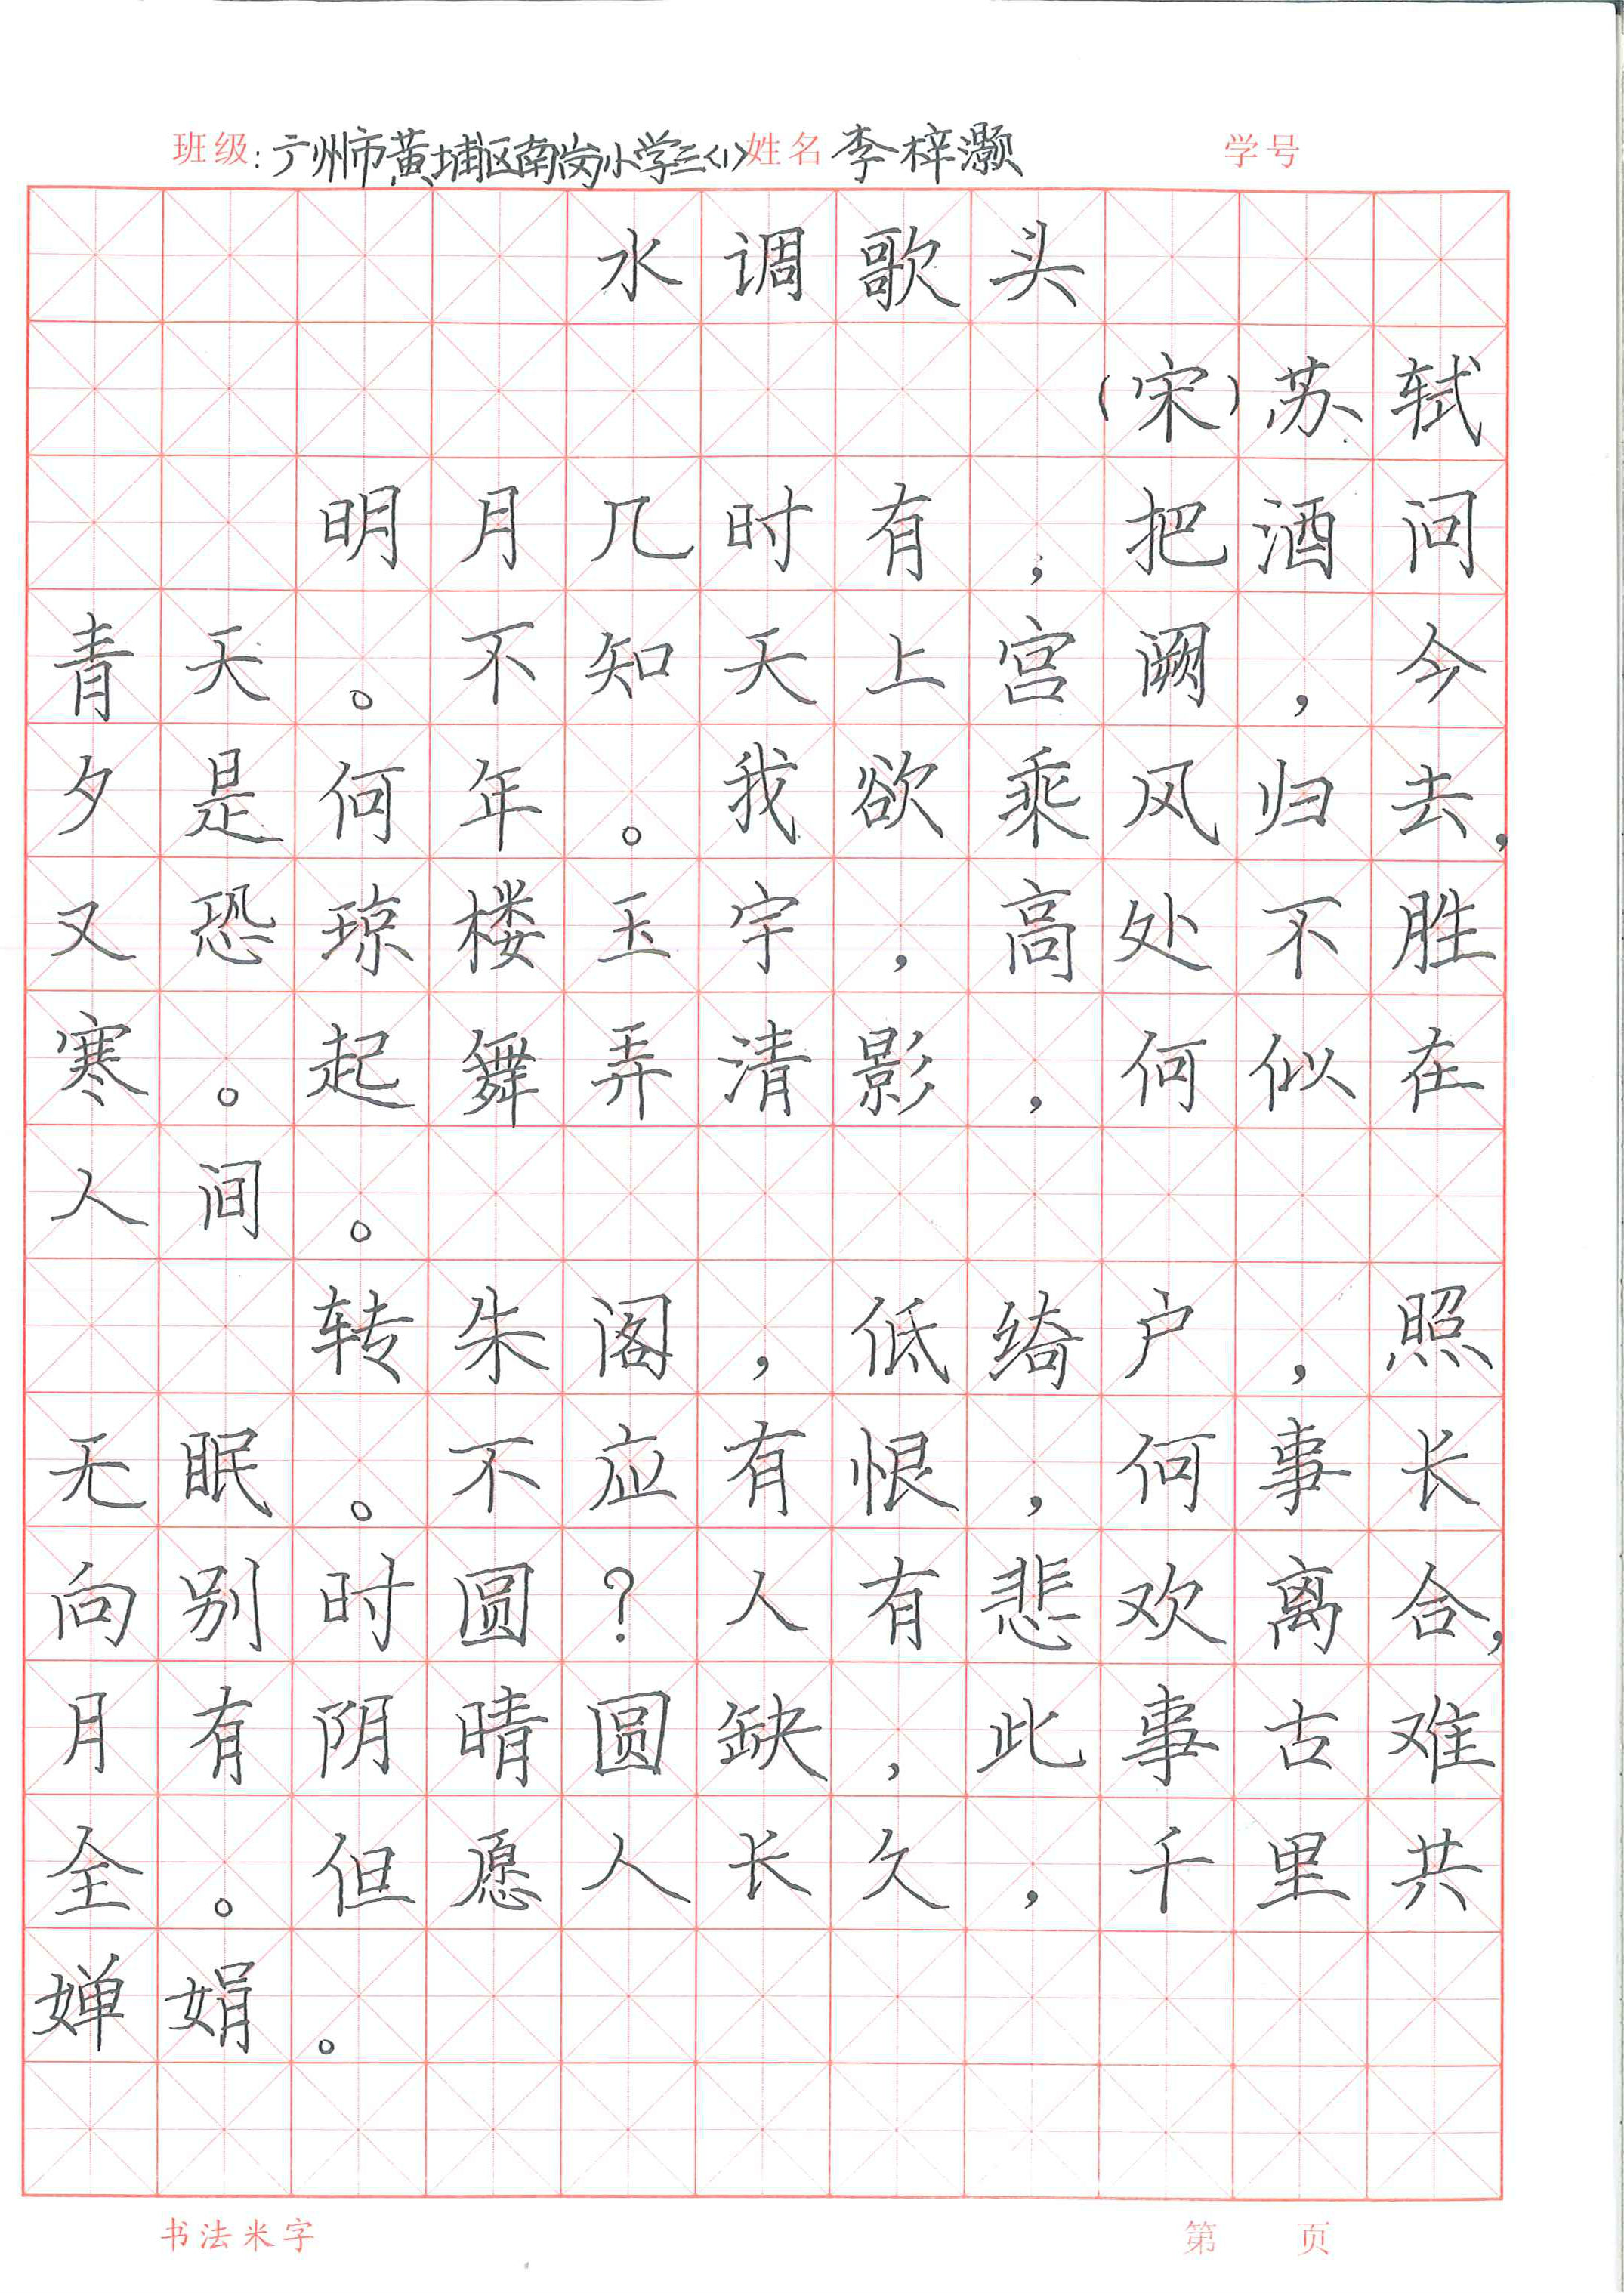 班级:广州市黄埔区南岗小学三<1>姓名 李梓灏 学号
水调歌头
(宋)苏轼
明月几时有;把酒问
青天。不知天上宫阙,今
夕是何年。我欲乘风归去,
又恐琼楼玉宇,高处不胜
寒。起舞弄清影,何似在
人间。
转朱阁,低绮户,照
无眠。不应有恨,何事长
向别时圆?人有悲欢离合,
月有阴晴圆缺,此事古难
全。但愿人长久,千里共
婵娟。
书法米字 第 页